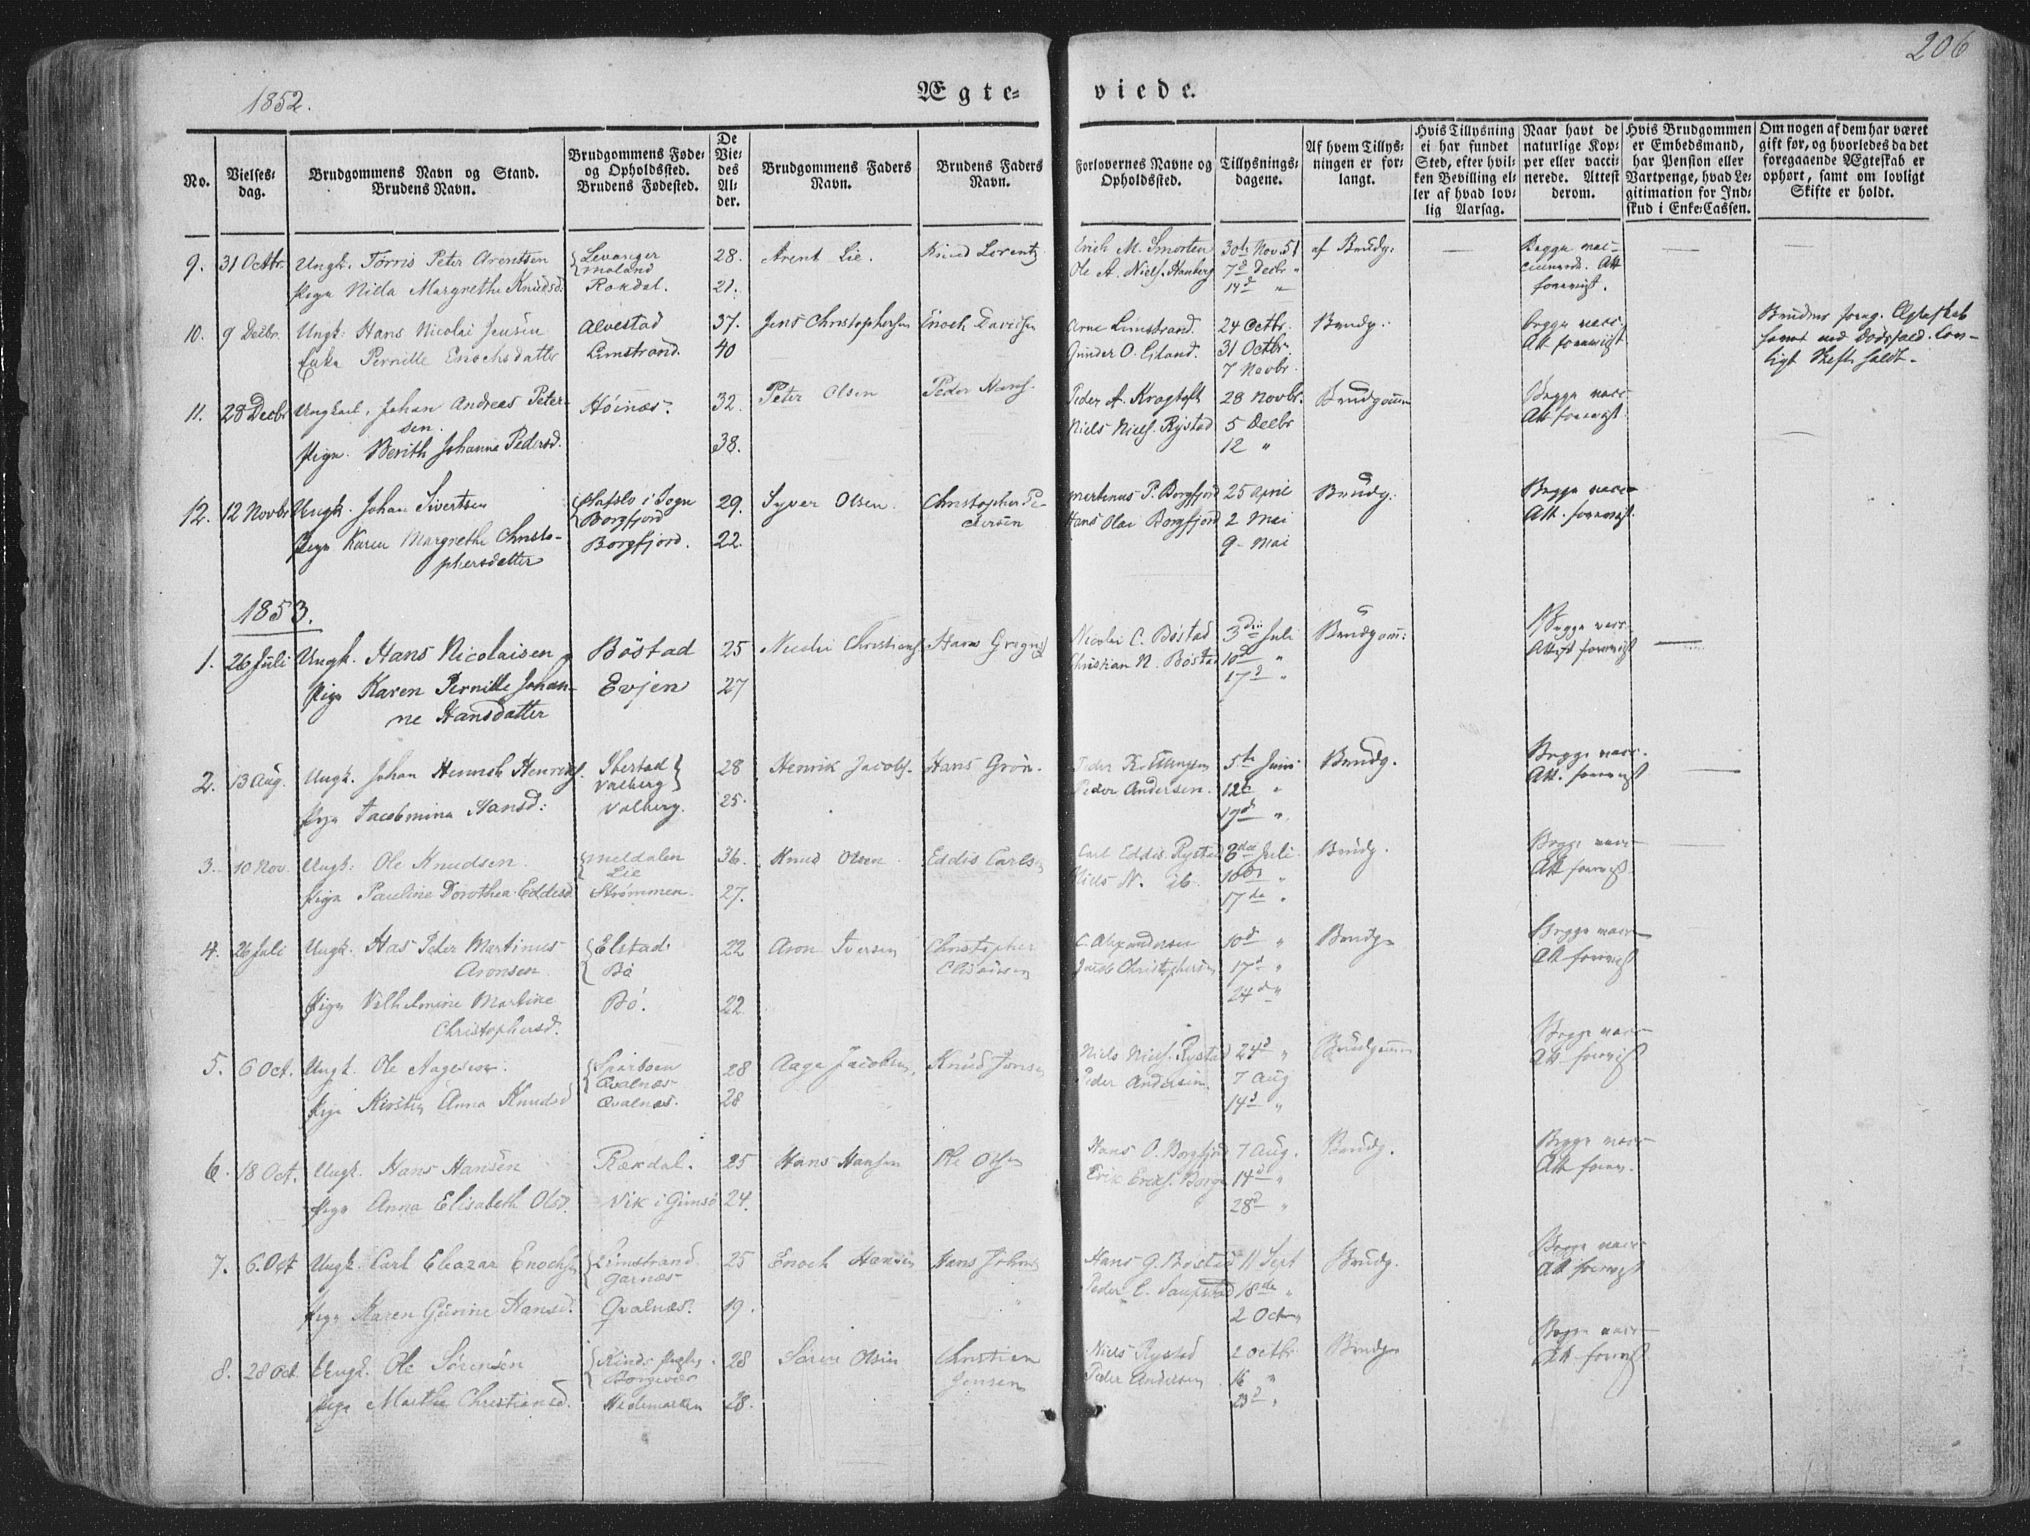 206
1852.
Ægte-
viede.
No.
Vielses-
dag.
Brudgommens Navn og Stand.
Brudens Navn.
Brudgommens Føde-
og Opholdssted.
Brudens Fødested.
De
Vie-
des
Al-
der.
Brudgommens Faders
Navn.
Brudens Faders
Navn.
Forlovernes Navne og
Opholdssted.
Tillysnings-
dagene.
Af hvem Tillys-
ningen er for-
langt.
Hvis Tillysning
ei har fundet
Sted, efter hvil-
ken Bevilling el-
ler af hvad lov-
lig Aarsag.
Naar havt de
naturlige Kop-
per eller vacci-
nerede. Attest
derom.
Hvis Brudgommen
er Embedsmand,
har Pension eller
Vartpenge, hvad Le-
gitimation for Ind-
skud i Enke-Cassen.
Om nogen af dem har været
gift før, og hvorledes da det
foregaaende Ægteskab er
ophørt, samt om lovligt
Skifte er holdt.
9. 31 Octbr. Ungk. Tørris Peter Arentsen Levanger 28. Arent Lie. Knud Lorentz Erich M. Smorten 30te Nov 51 af Brudg. Begge vac-
moland Ole A. Niels. Hanberg 7d Decbr " cinerede. Att
Pige Nilla Margrethe Knudsd. Rokdal. 21. 14d " forevist.
10. 9 Decbr. Ungk: Hans Nicolai Jensen Alvestad 37. Jens Christophersen Enoch Davidsen Arne Limstrand. 24 Octbr. Brudg. begge vacc. Brudens foreg. Ægteskab
Enke Pernille Enochsdatter Limstrand. 40 Gunder O. Eiland. 31 Octbr. Att forevist hævet ved Dødsfald. Lov-
7 Novbr. ligt Skifte holdt.
11. 28 Decbr Ungkarl. Johan Andreas Peter- Høinæs. 32. Peter Olsen Peder Hans. Peder A. Kragtoft 28 Novbr. Brudgommen Begge vacc.
sen. Niels Niels. Rystad 5 Decbr Att forevist.
Pige Berith Johanna Pedersd. 38. 12 "
12. 12 Novbr Ungk. Johan Sivertsen Hafslo i Sogn 29. Syver Olsen. Christopher Pe- Martinus P. Borgfjord 25 April Brudg. Begge vacc.
Borgfjord dersen Hans Olai Borgfjord 2 Mai Att. forevist.
Pige Karen Margrethe Christo- Borgfjord. 22. 9 Mai
phersdatter
1853.
1. 26 Juli Ungk. Hans Nicolaisen Bøstad 25 Nicolai Christians Hans Gregers Nicolai C. Bøstad 3die Juli Brudgom: Begge vacc.
Christian N. Bøstad 10d " Attest forevist
Pige Karen Pernille Johan- Evjen 27 17d "
ne Hansdatter
2. 13 Aug. Ungk. Johan Henrich Henriks. Ibestad 28 Henrik Jacobs. Hans Grøn. Peder K. 5te Juni Brudg. Begge vacc.
Valberg Peder Andersen. 12te " Att. forevist
Pige Jacobmina Hansd: Valberg. 25. 19d "
3. 10 Nov. Ungk: Ole Knudsen. Meldalen 36. Knud Olsen Eddis Carlsen Carl Eddis. Rystad 3die Juli. Brudg. Begge vacc.
Lie Niels N. ib. 10de " Att forevist
Pige Pauline Dorothea Eddisd. Strømmen. 27. 17de "
4. 26 Juli Ungk. Has Peter Martinus Elstad 22 Aron Iversen Christopher C. Alexandersen 10d " Brudg. Begge vacc.
Aronsen Bø Jacob Christophersen 17d " Att forevist
Pige Vilhelmine Martine Bø. 22 24d "
Christophersd.
5. 6 Oct. Ungk. Ole Aagesen. Sparboen 28 Aage Jacobsen, Knud Jonsen Niels Niels. Rystad 24d " Brudgommen Begge vacc
Qvalnæs Peder Andersen. 7 Aug Att forevist
Pige Kirstin Anna Knudsd Qvalnæs. 28 14d "
6. 18 Oct. Ungk. Hans Hansen Rækdal. 25 Hans Hansen Ole Olsen Hans O. Borgfjord 7 Aug. Brudg. Begge vacc
Erik Eriks. Borge 14d " Att forev.
Pige Anna Elisabeth Olsd. Vik i Gimsø 24. 28d "
7. 6. Oct Ungk. Carl Eleazar Enochsen Limstrand 25 Enoch Hansen Hans Johns Hans G. Bøstad 11 Sept Brudg. Begge vacc
Garnæs Peder C. Saupstad 18de " Att forevist
Pige Karen Gurine Hansd. Qvalnæs. 19. 2 Octbr
8. 28 Oct Ungk. Ole Sørensen 28 Søren Olsen Christian Niels Rystad 2 Octbr Brudg. Begge vacc
Borgevær Jensen Peder Andersen 16 " Att forevist
Pige Marthe Christiansd. Hedemarken 28. 23d "